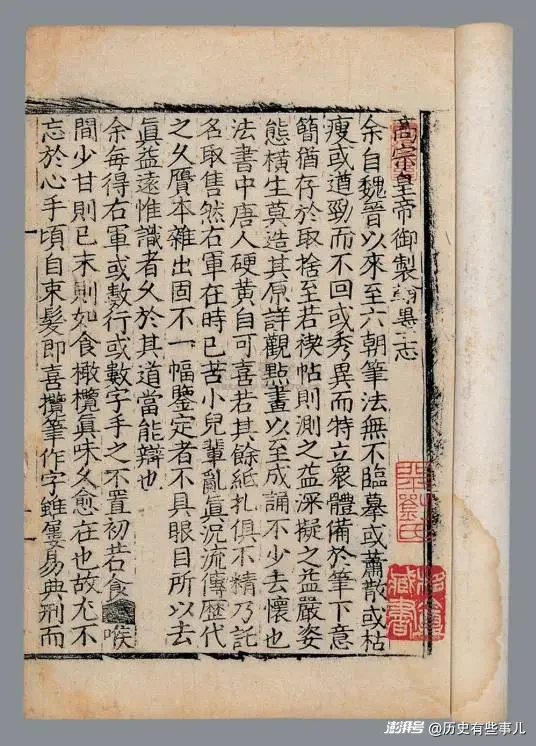 高宗皇帝御製翰墨志
余自魏晉以來至六朝筆法無不臨摹或蕭散或枯
瘦或遒勁而不回或秀異而特立衆體備於筆下意
簡猶存於取捨至若禊帖則測之益深擬之益嚴姿
態橫生莫造其原詳觀點畫以至成誦不少去懷也
法書中唐人硬黃自可喜若其餘紙札俱不精乃託
名取售然右軍在時已苦小兒輩亂真況流傳歷代
之久贗本雜出固不一幅鑒定者不具眼目所以去
真益遠惟識者久於其道當能辯也
余每得右軍或數行或數字手之不置初若食喉
間少甘則已末則如食橄欖真味久愈在也故尤不
忘於心手頃自束髮即喜攬筆作字雖屢易典刑而
藏書
澎湃号@历史有些事儿